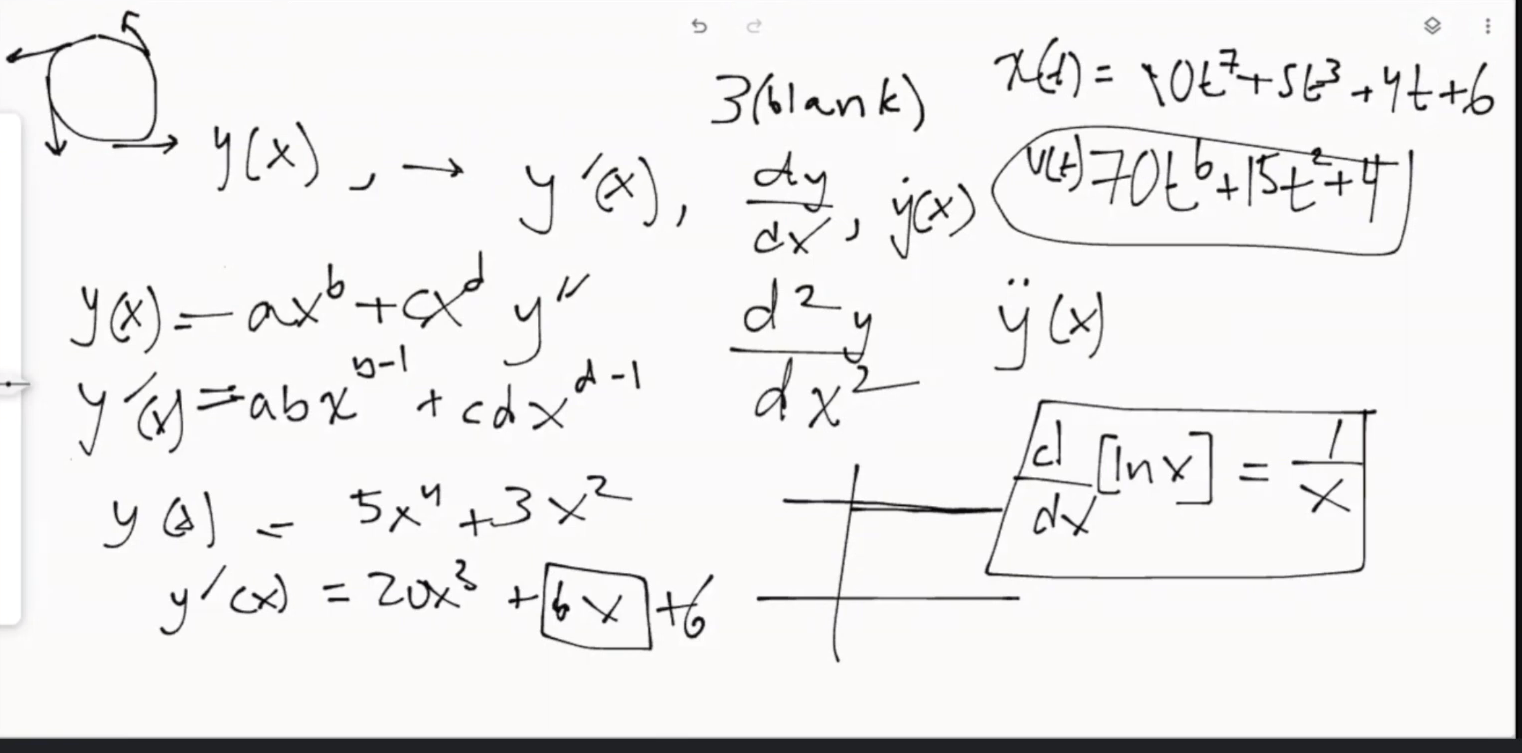 3(blank)
x(t) = 10t⁷+5t³+4t+6
y(x), → y′(x), dy/dx, ẏ(x)
v(t) 70t⁶+15t²+4
y(x) = ax^b + cx^d
y″ d²y/dx² ÿ(x)
y′(x) = abx^(b-1) + cdx^(d-1)
d/dx [ln x] = 1/x
y(x) = 5x⁴+3x²
y′(x) = 20x³ + 6x +6